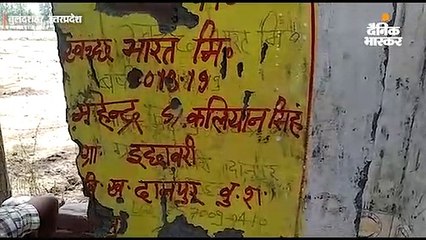 बुलंदशहर, उत्तरप्रदेश
दैनिक
भास्कर
स्वच्छ भारत मि०
2018-19
महेन्द्र S/ कलियान सिंह
ग्रा इछावरी
वि ख दानपुर बु श